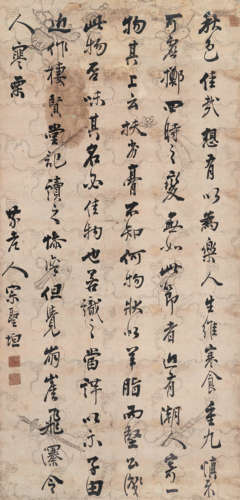 秋色佳哉想有以為樂人生維寒食重九慎不
可虛擲四時之變無如此節者近有潮人寄
物其上云扶劣膏不知何物狀以羊脂而堅公識
此物否味其名必佳物也若識之當詳以示子由
近作棲賢堂記讀之慘凜但覺崩崖飛瀑令
人寒栗
人宋聖垣